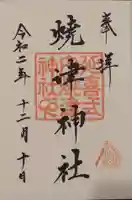 奉拝
焼津神社
令和二年十二月十日